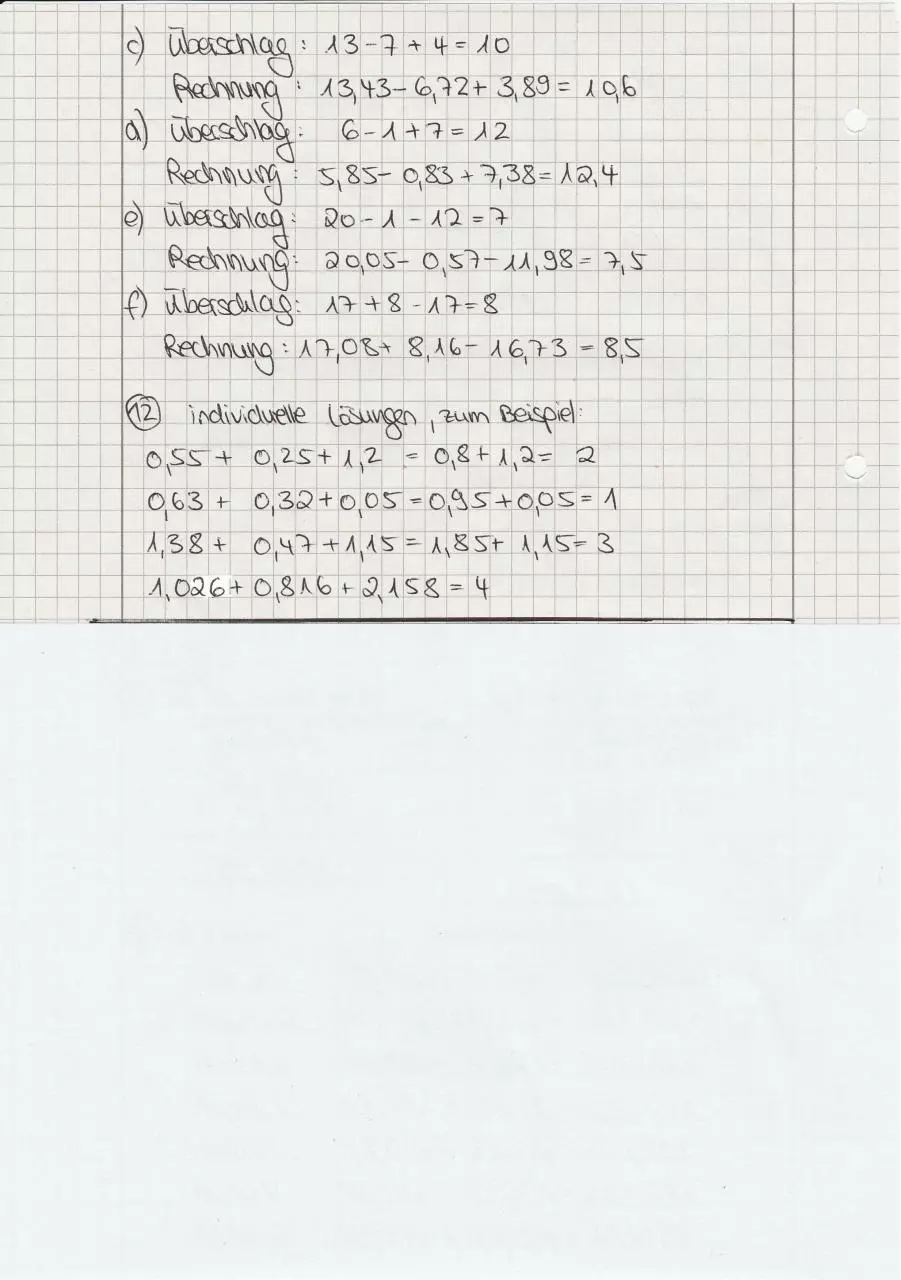 c) Überschlag: 13-7+4=10
Rechnung: 13,43-6,72+3,89=10,6
d) Überschlag: 6-1+7=12
Rechnung: 5,85-0,83+7,38=12,4
e) Überschlag: 20-1-12=7
Rechnung: 20,05-0,57-11,98=7,5
f) Überschlag: 17+8-17=8
Rechnung: 17,08+8,16-16,73=8,5
12 individuelle Lösungen, zum Beispiel:
0,55+0,25+1,2=0,8+1,2=2
0,63+0,32+0,05=0,95+0,05=1
1,38+0,47+1,15=1,85+1,15=3
1,026+0,816+2,158=4